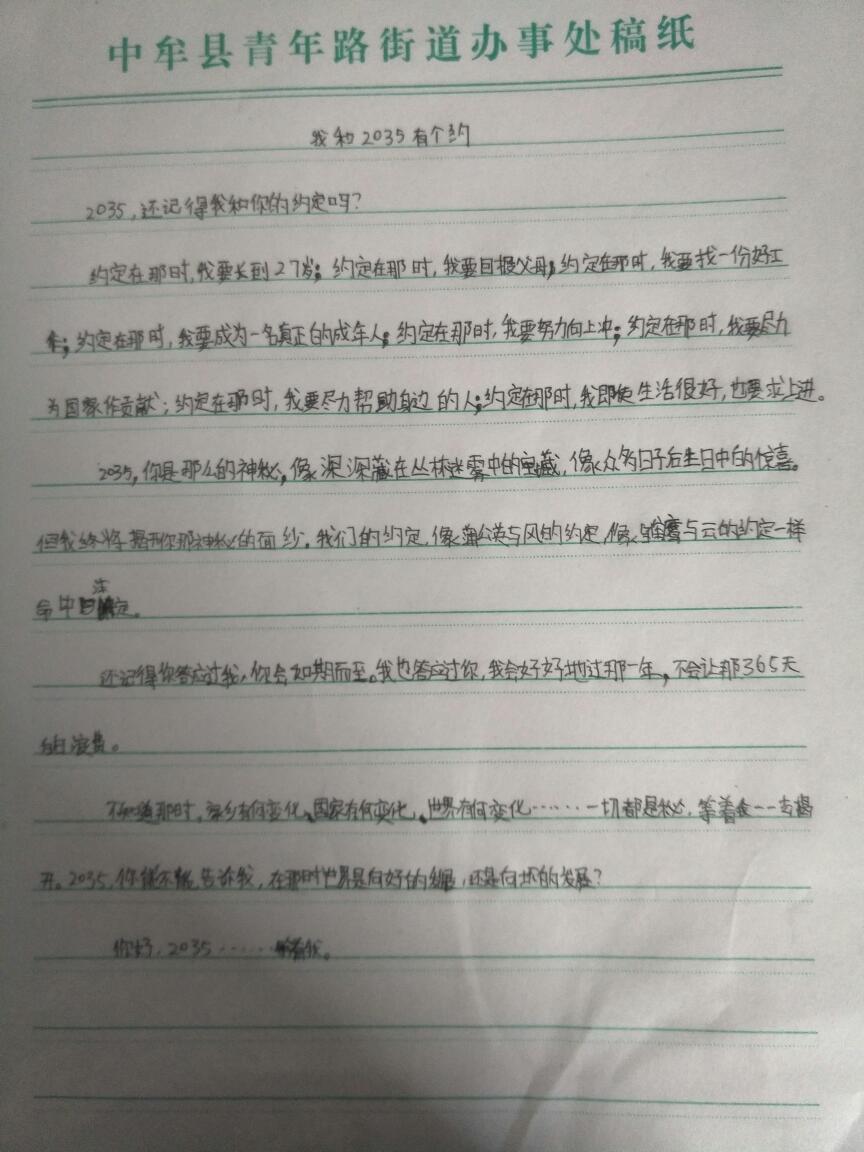 中牟县青年路街道办事处稿纸
我和2035有个约
2035,还记得我和你的约定吗?
约定在那时,我要长到27岁;约定在那时,我要回报父母;约定在那时,我要找一份好工
作;约定在那时,我要成为一名真正的成年人;约定在那时,我要努力向上冲;约定在那时,我要尽力
为国家作贡献;约定在那时,我要尽力帮助身边的人;约定在那时,我即使生活很好,也要求上进。
2035,你是那么的神秘,像深深藏在丛林迷雾中的宝藏,像众多日子后生日中的惊喜。
但我终将揭开你那神秘的面纱。我们的约定,像蒲公英与风的约定,像与云的约定一样
命中注定。
还记得你答应过我,你会如期而至。我也答应过你,我会好好地过那一年,不会让那365天
白白浪费。
不知道那时,家乡有何变化、国家有何变化、世界有何变化……一切都是秘,等着我一一去揭
开。2035,你能不能告诉我,在那时世界是向好的发展,还是向坏的发展?
你好,2035……等着我。